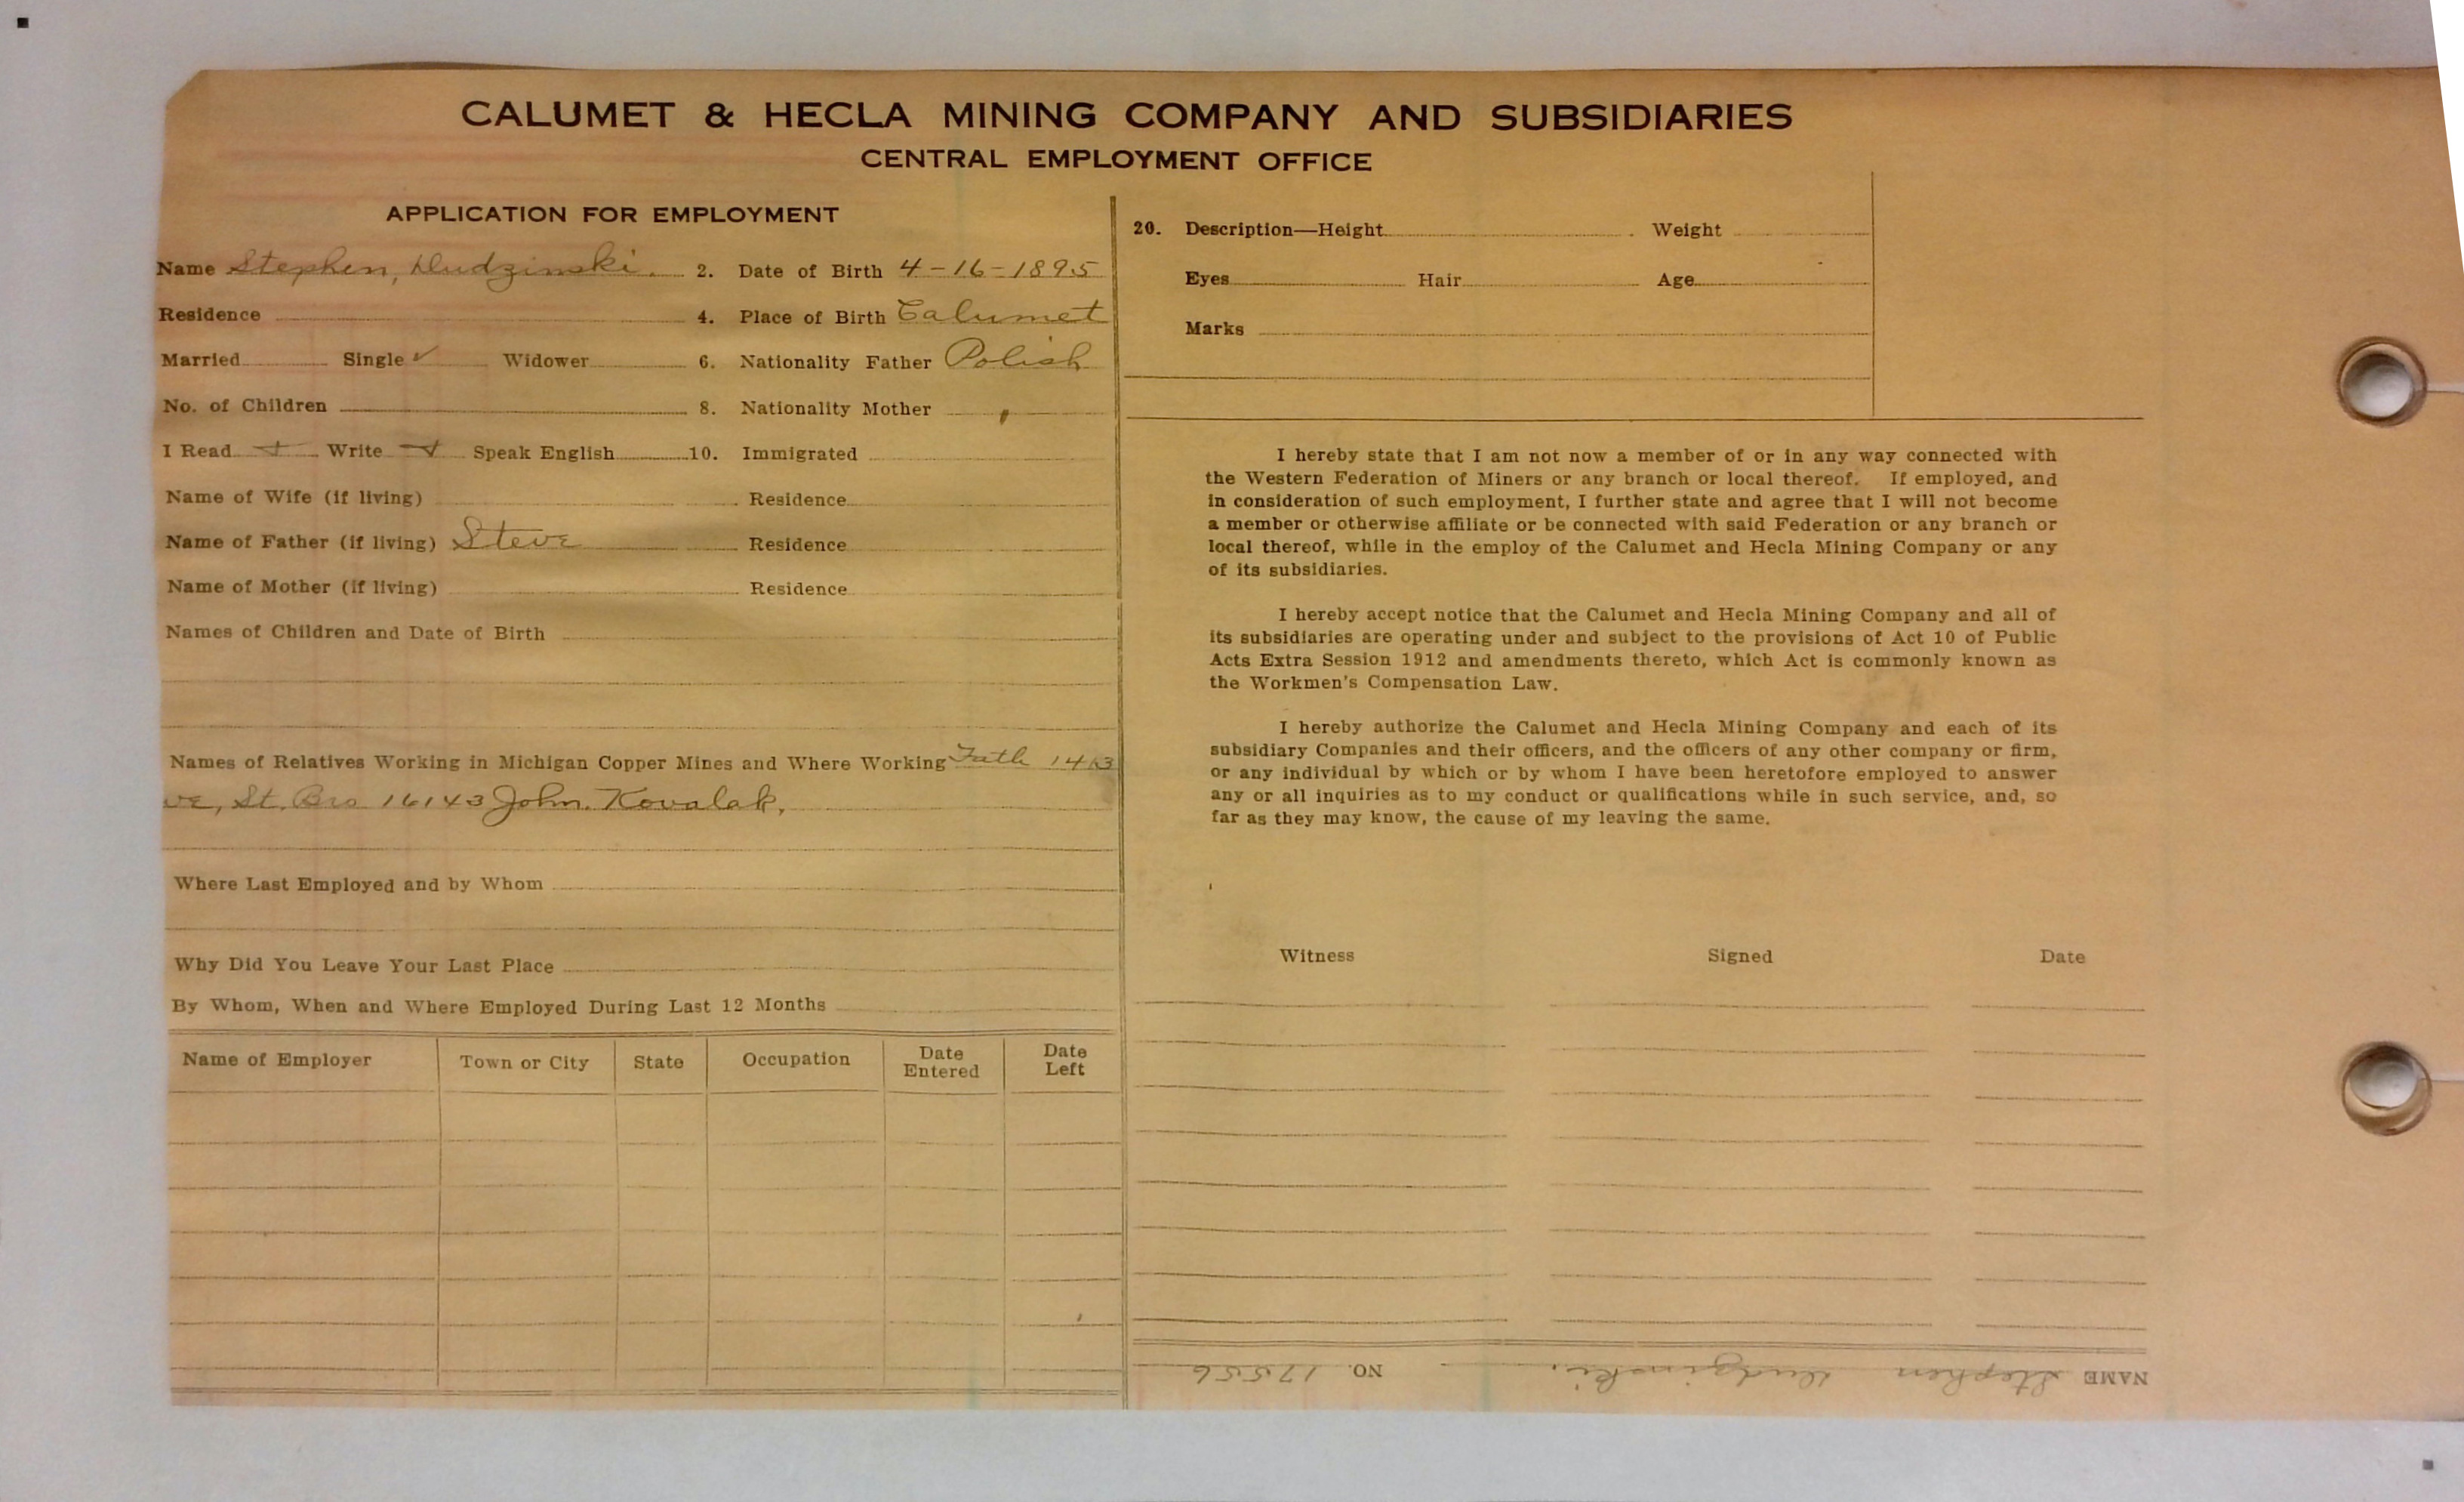 CALUMET & HECLA MINING COMPANY AND SUBSIDIARIES
CENTRAL EMPLOYMENT OFFICE
APPLICATION FOR EMPLOYMENT
Name Stephen, Dudzinski. 2. Date of Birth 4-16-1895
Residence 4. Place of Birth Calumet
Married Single ✓ Widower 6. Nationality Father Polish
No. of Children 8. Nationality Mother
I Read Write Speak English 10. Immigrated
Name of Wife (if living) Residence
Name of Father (if living) Steve Residence
Name of Mother (if living) Residence
Names of Children and Date of Birth
Names of Relatives Working in Michigan Copper Mines and Where Working Fath
St. Bro 16143 John. Kovalak.
Where Last Employed and by Whom
Why Did You Leave Your Last Place
By Whom, When and Where Employed During Last 12 Months
Name of Employer Town or City State Occupation Date Entered Date Left
20. Description—Height Weight
Eyes Hair Age
Marks
I hereby state that I am not now a member of or in any way connected with
the Western Federation of Miners or any branch or local thereof. If employed, and
in consideration of such employment, I further state and agree that I will not become
a member or otherwise affiliate or be connected with said Federation or any branch or
local thereof, while in the employ of the Calumet and Hecla Mining Company or any
of its subsidiaries.
I hereby accept notice that the Calumet and Hecla Mining Company and all of
its subsidiaries are operating under and subject to the provisions of Act 10 of Public
Acts Extra Session 1912 and amendments thereto, which Act is commonly known as
the Workmen's Compensation Law.
I hereby authorize the Calumet and Hecla Mining Company and each of its
subsidiary Companies and their officers, and the officers of any other company or firm,
or any individual by which or by whom I have been heretofore employed to answer
any or all inquiries as to my conduct or qualifications while in such service, and, so
far as they may know, the cause of my leaving the same.
Witness Signed Date
NAME Stephen Dudzinski. NO. 17556